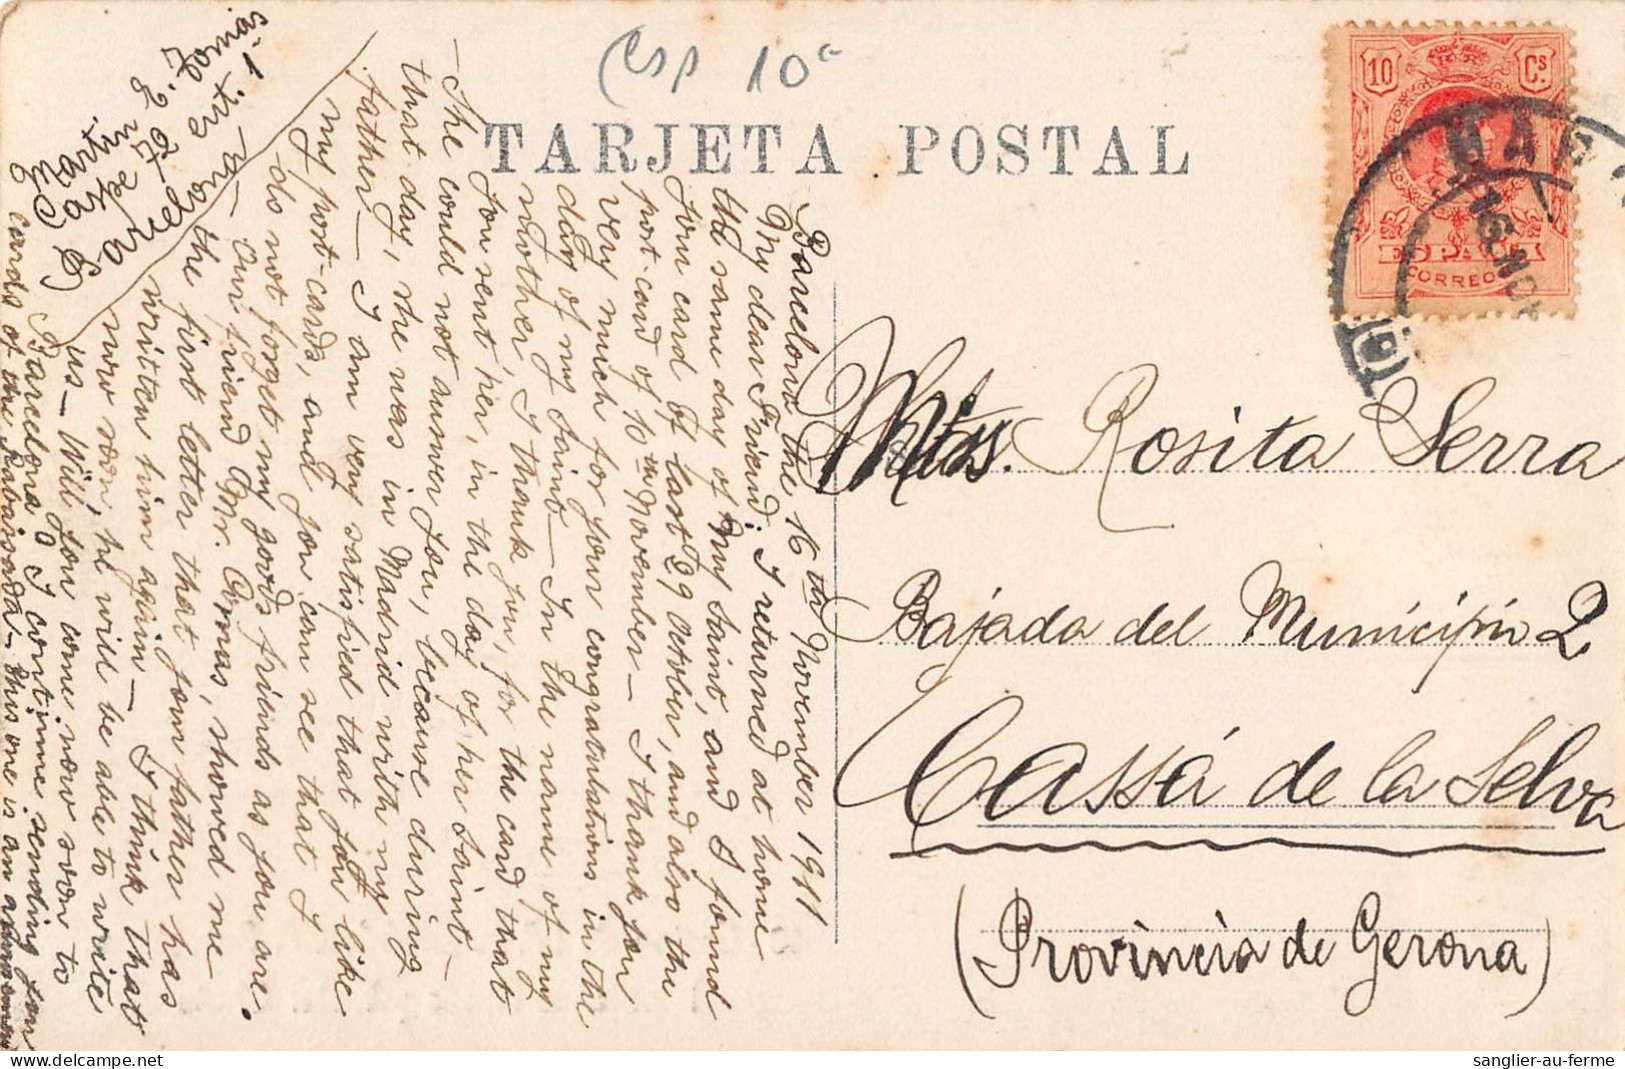 TARJETA POSTAL
Esp 10
10 Cs.
ESPAÑA
CORREOS
16 NOV
Barcelona the 16 th November 1911
My dear Friend: I returned at home
the same day of my Saint, and I found
your card of last 29 October, and also the
post-card of 10 th November - I thank you
very much for your congratulations in the
day of my Saint - In the name of my
mother, I thank you, for the card that
you sent her, in the day of her Saint -
- She could not answer you, because during
that day, she was in Madrid with my
father - I am very satisfied that you like
my post-cards, and you can see that I
do not forget my goods friends as you are.
- Our friend Mr. showed me
the first letter that your father has
written him again - I think that
now soon, he will be able to write
us - Will you come now soon to
Barcelona? I continue sending you
cards of the Rabassada - this one is an
Martin E. Tomás
Caspe 72 ent. 1ª
Barcelona
Rosita Serra
Bajada del Municipio 2
Cassá de la Selva
(Provincia de Gerona)
sanglier-au-ferme